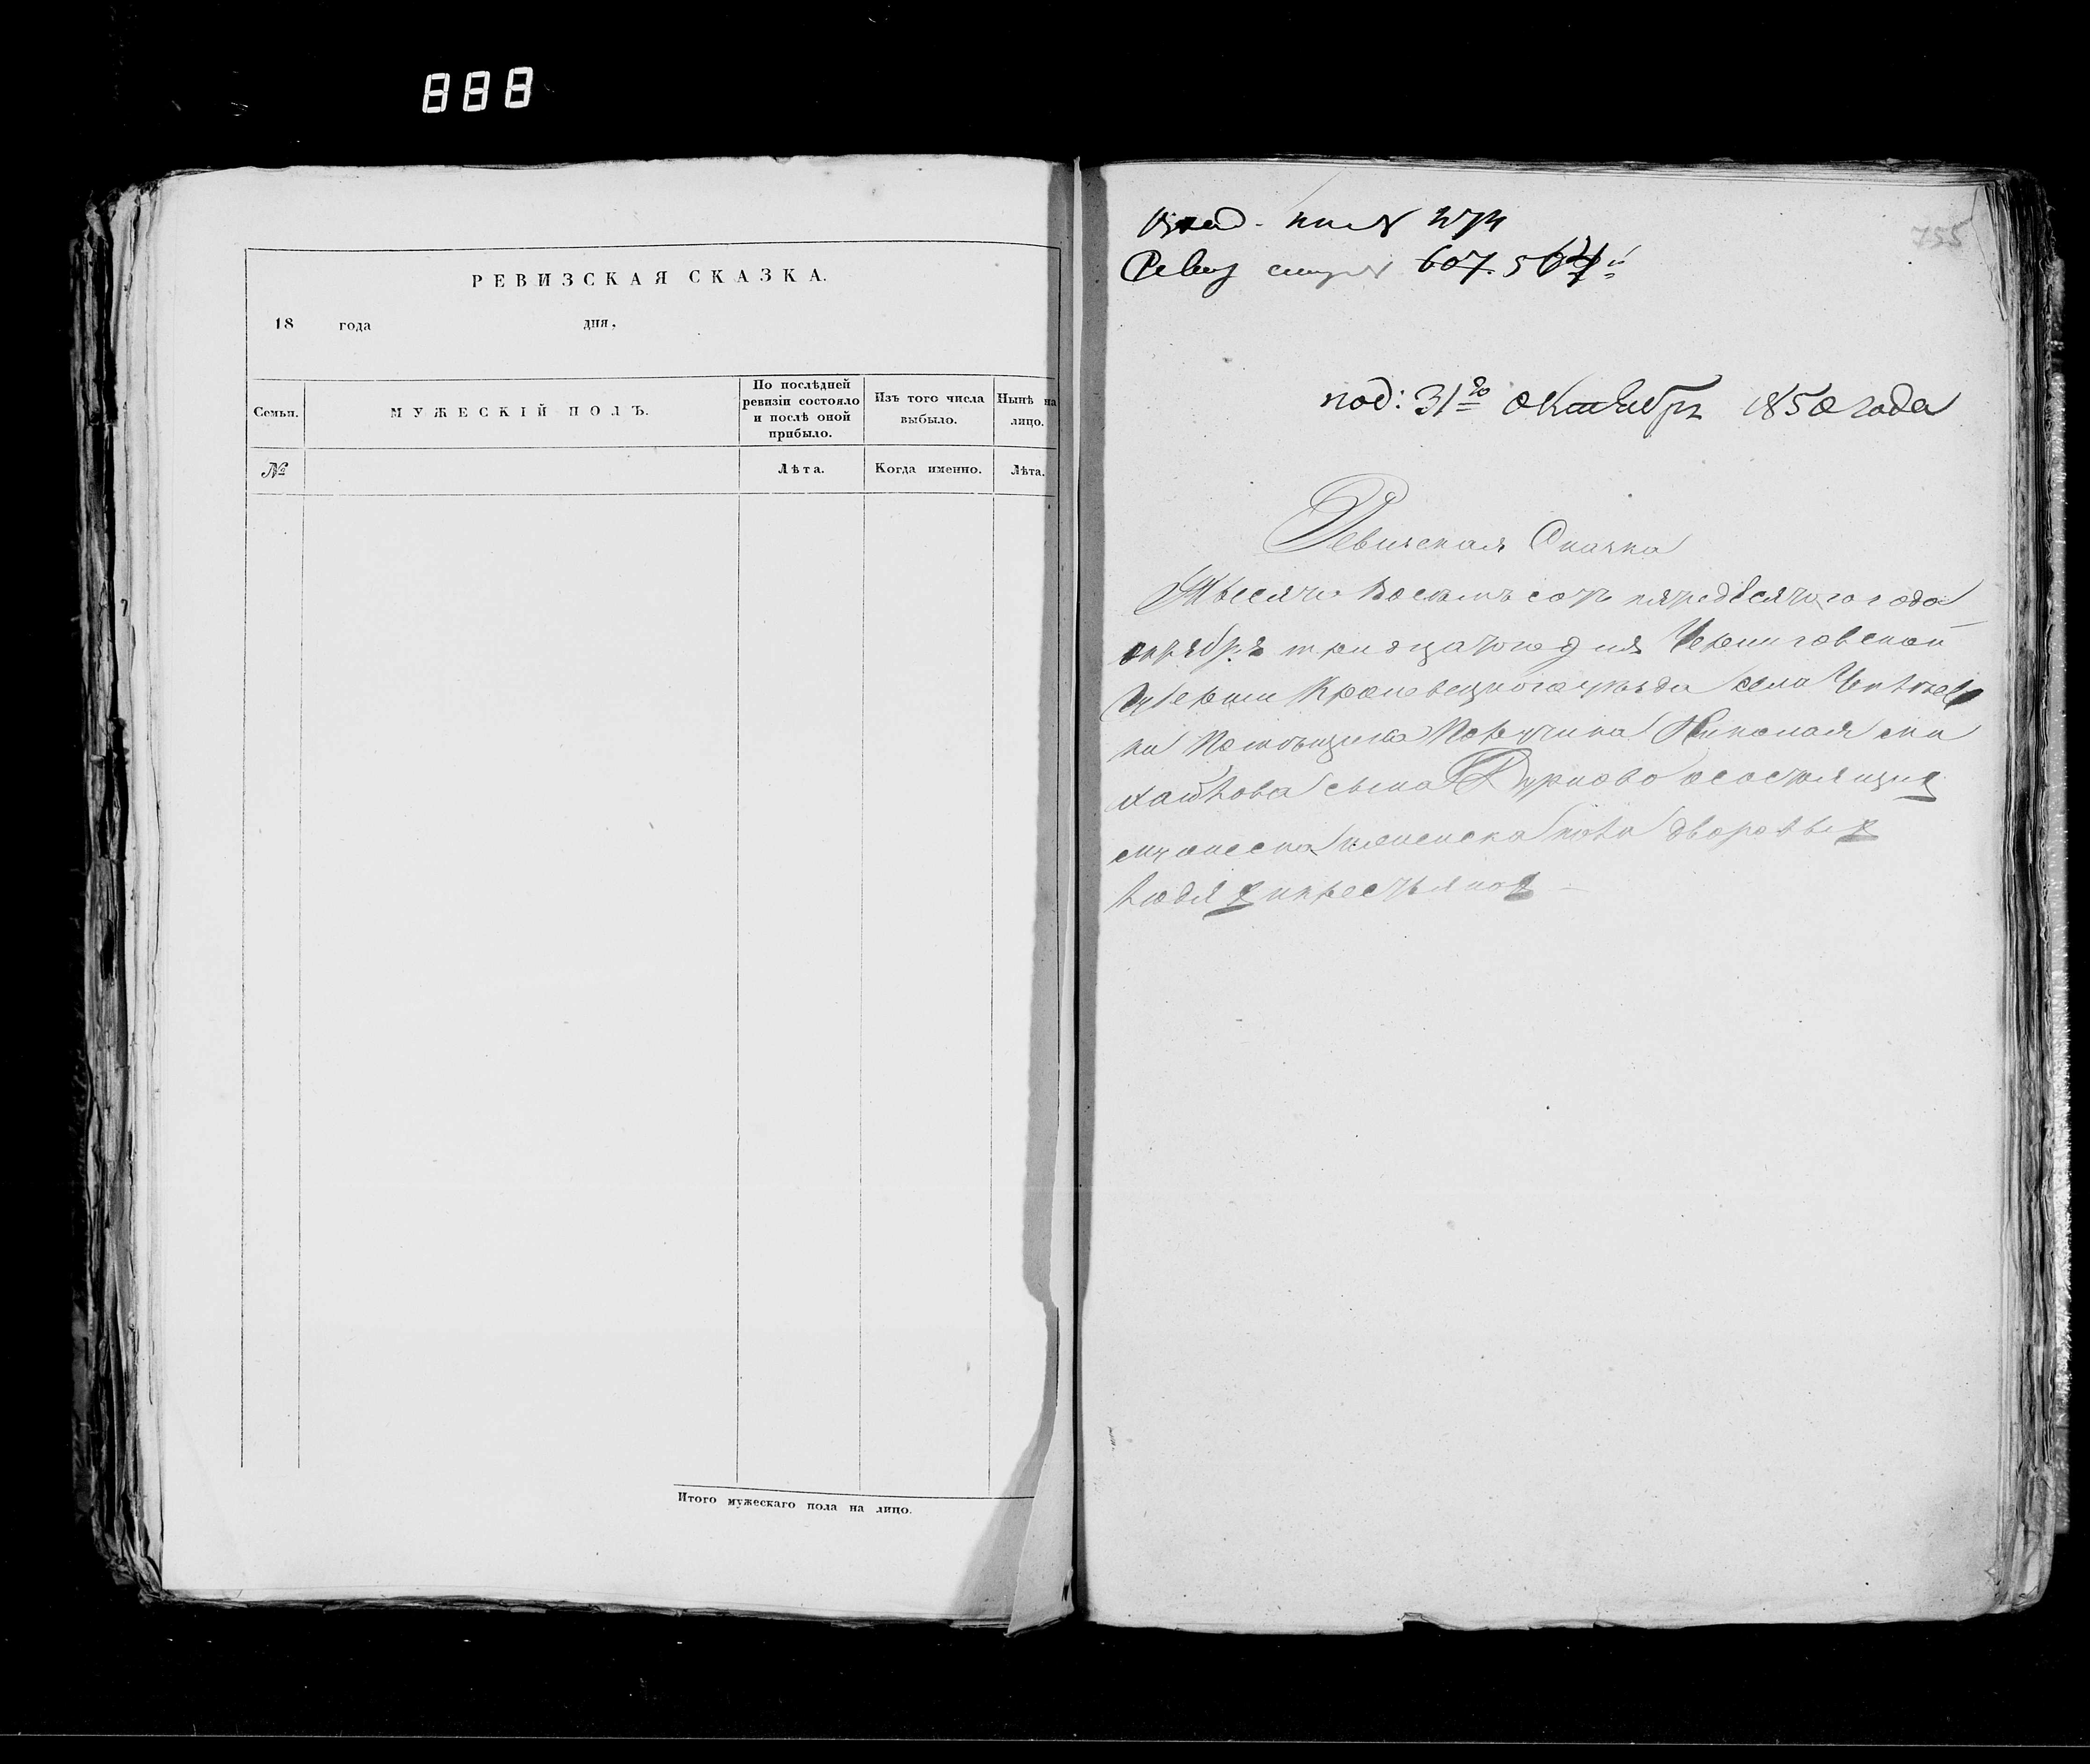 888
РЕВИЗСКАЯ СКАЗКА.
18 года дня,
Семьи.
МУЖЕСКІЙ ПОЛЪ.
По послѣдней ревизіи состояло и послѣ оной прибыло.
Изъ того числа выбыло.
Нынѣ на лицо.
№
Лѣта.
Когда именно.
Лѣта.
Итого мужескаго пола на лицо.
755
Ревиз 607.
под: 31го октября 1850 года
Ревизская Сказка
Тысяча восемь сотъ пятьдесятого года
октября тритцатого дня Черниговской
Губернии Кролевецкого уезда села
ка Помещика Поручика Николая Ми
хайлова сына Дурново о состоящих
мужеска и женска пола дворовых
людях и крестьянах